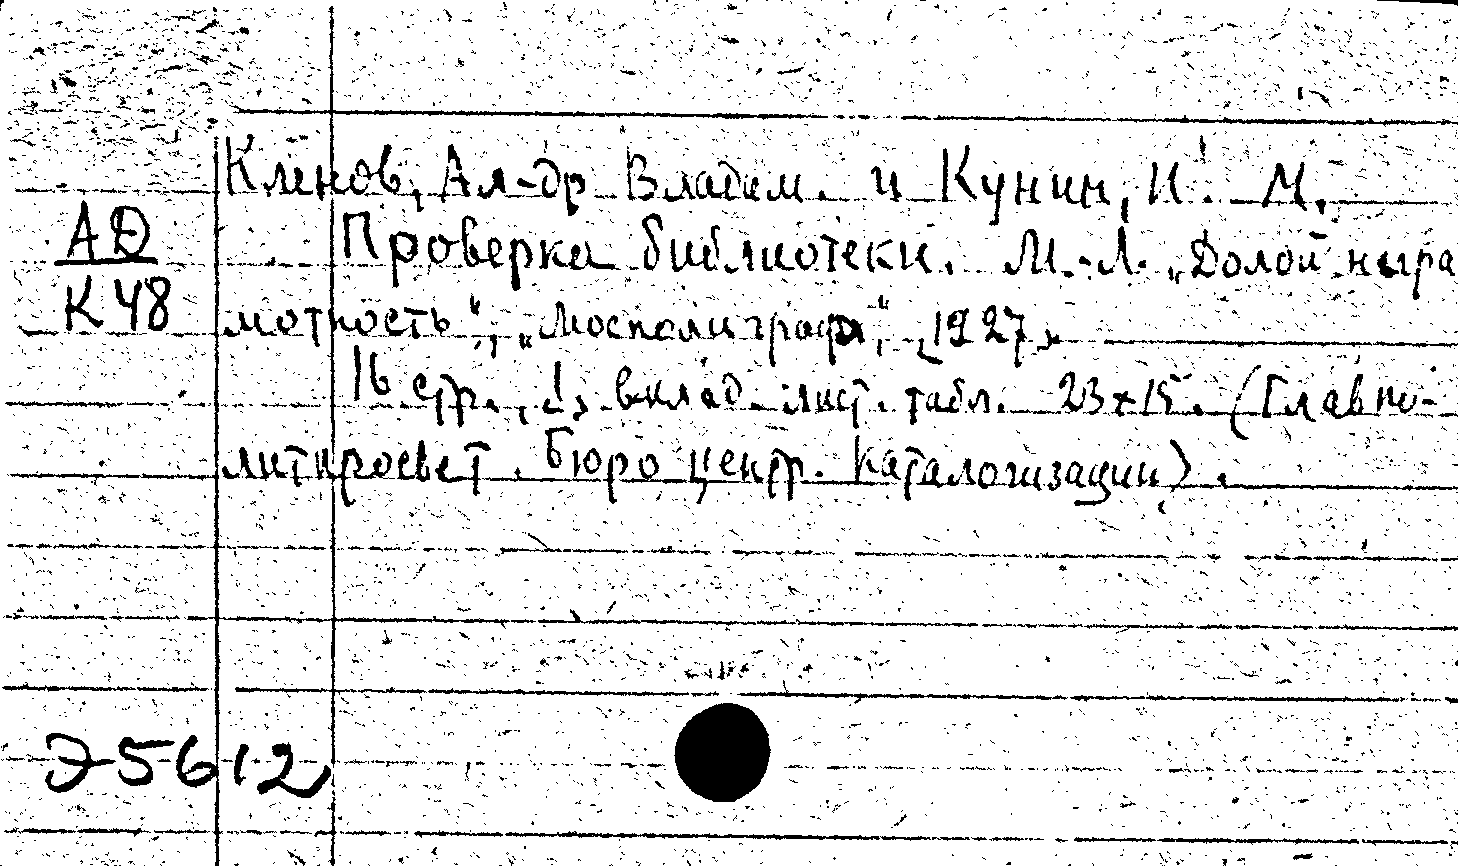 Кленов, Ал-др Владим. и Кунин, И. М.
АД
Проверка библиотеки. М.-Л. „Долой негра
К48
мотность“, „Мосполиграф“, 1927.
16 стр., 1 вклад. лист. табл. 23×15. (Главпо-
литпросвет. Бюро центр. каталогизации).
Э-5612